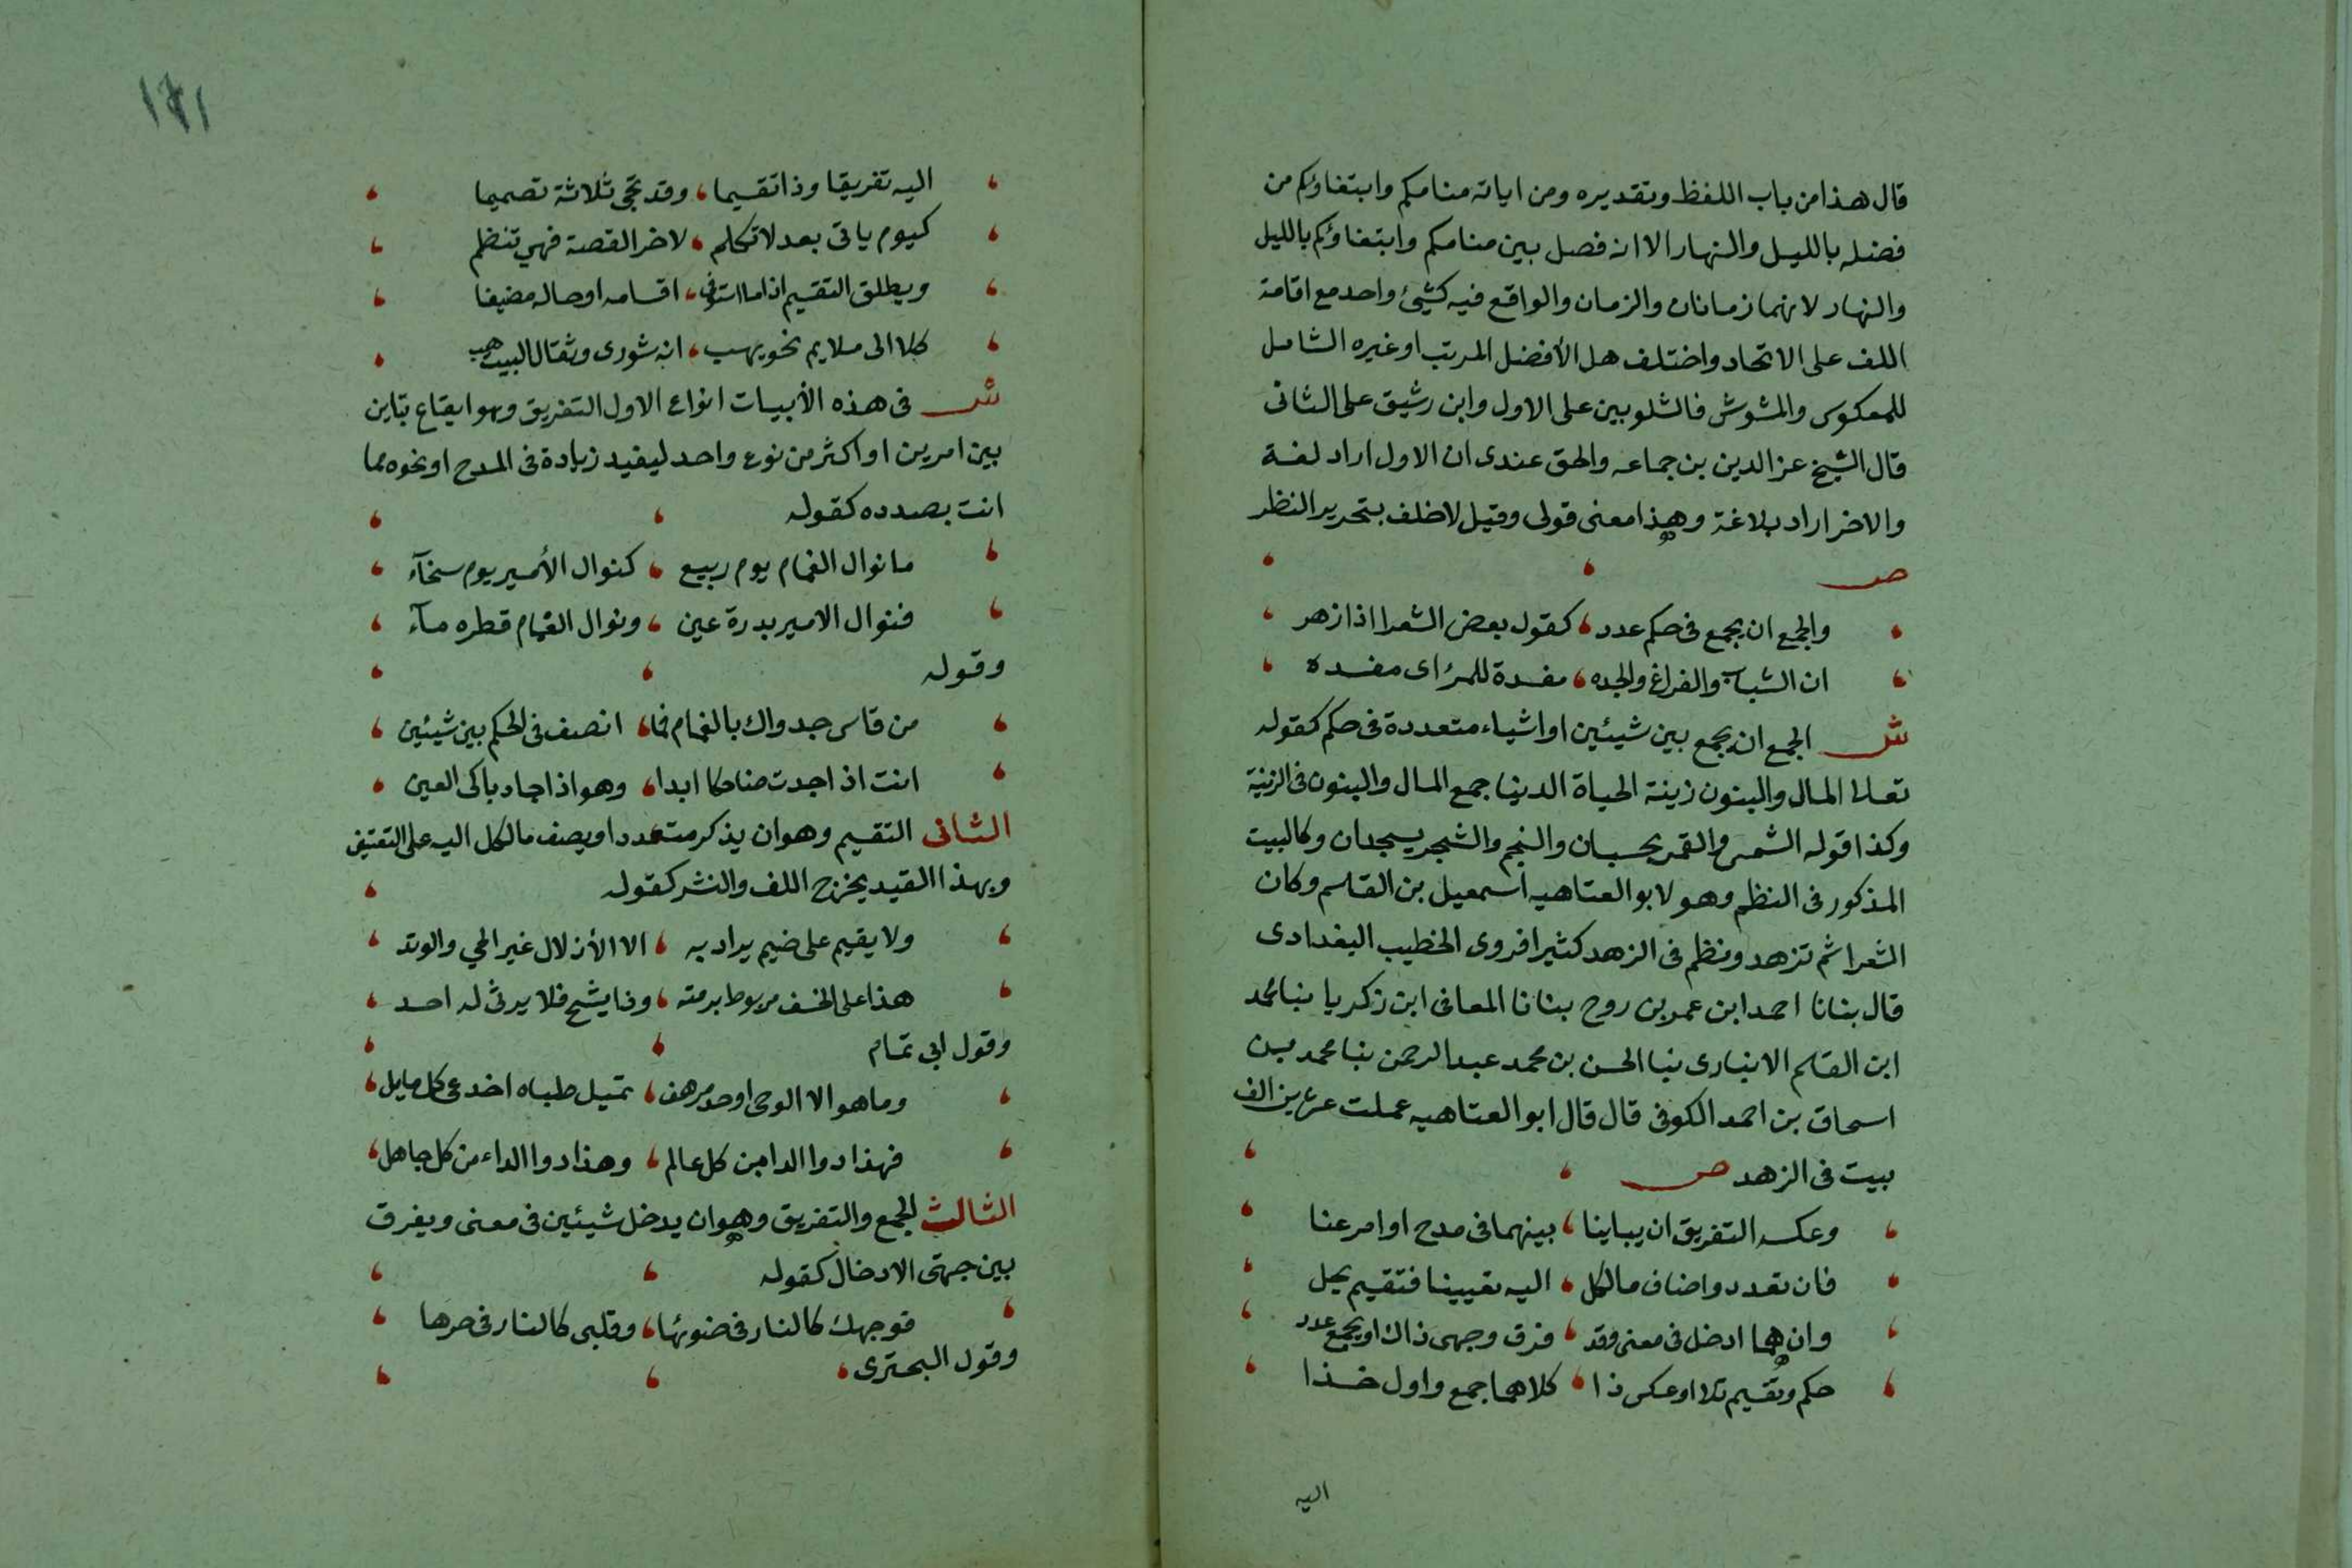 قال هذا من باب اللفظ وتقديره ومن اياته منامكم وابتغاؤكم من
فضله بالليل والنهار الا انه فصل بين منامكم وابتغاؤكم بالليل
والنهار لانهما زمانان والزمان والواقع فيه كشئ واحد مع اقامة
اللف على الاتحاد واختلف هل الأفضل المرتب او غيره الشامل
للمعكوس والمشوش فالشلوبين على الاول وابن رشيق على الثانى
قال الشيخ عز الدين بن جماعه والحق عندى ان الاول اراد لغة
والاخر اراد بلاغة وهذا معنى قولى وقيل لاخلف بتحرير النظر
ص
والجمع ان يجمع فى حكم عدد ، كقول بعض الشعرا اذا زهر
ان الشباب والفراغ والجده ، مفسدة للمرأى مفسده
ش الجمع ان يجمع بين شيئين او اشياء متعددة فى حكم كقوله
تعالى المال والبنون زينة الحياة الدنيا جمع المال والبنون فى الزينة
وكذا قوله الشمس والقمر بحسبان والنجم والشجر يسجدان وكالبيت
المذكور فى النظم وهو لابو العتاهيه اسمعيل بن القاسم وكان
الشعرا ثم تزهد ونظم فى الزهد كثيرا فروى الخطيب البغدادى
قال بنانا احمد ابن عمر بن روح بنانا المعافى ابن زكريا بنا محمد
ابن القاسم الانبارى بنا الحسن بن محمد عبد الرحمن بنا محمد بن
اسحاق بن احمد الكوفى قال قال ابو العتاهيه عملت عشرين الف
بيت فى الزهد ص
وعكسه التفريق ان يباينا ، بينهما فى مدح او امر عنا
فان تعدد واضاف ما لكل ، اليه تعيينا فتقيم يحل
وان هما ادخل فى معنى وقد ، فرق وجهى ذاك او يجمع عدد
حكم وتقسيم تلا او عكس ذا ، كلاهما جمع واول خذا
اليه
١٧١
اليه تفريقا وذا تقسيما ، وقد تجى ثلاثة تصميما
كيوم ياتى بعد لا تكلم ، لاخر القصة فهي تنظم
ويطلق التقسيم اذا ما استوفى ، اقسامه او حاله مضيفا
كلا الى ملايم نحو يهب ، انه شورى وثقال البيت هب
ش فى هذه الأبيات انواع الاول التفريق وهو ايقاع تباين
بين امرين او اكثر من نوع واحد ليفيد زيادة فى المدح او نحوه مما
انت بصدده كقوله
ما نوال الغمام يوم ربيع ، كنوال الأمير يوم سخآء
فنوال الامير بدرة عين ، ونوال الغمام قطره مآء
وقوله
من قاس جدواك بالغمام فما ، انصف فى الحكم بين شيئين
انت اذ اجدت ضاحكا ابدا ، وهو اذا جاد باكى العين
الثانى التقسيم وهو ان يذكر متعدد او يضف ما لكل اليه على التعيين
وبهذا القيد يخرج اللف والنشر كقوله
ولا يقيم على ضيم يراد به ، الا الأذلال غير الحي والوتد
هذا على الخسف مربوط برمته ، وذا يشج فلا يرثى له احد
وقول ابى تمام
وما هو الا الوحى او حد مرهف ، تميل ظباه اخدعى كل مايل
فهذا دوا الدا من كل عالم ، وهذا دوا الداء من كل جاهل
الثالث الجمع والتفريق وهو ان يدخل شيئين فى معنى ويفرق
بين جهتى الادخال كقوله
فوجهك كالنار فى ضوئها ، وقلبى كالنار فى حرها
وقول البحترى